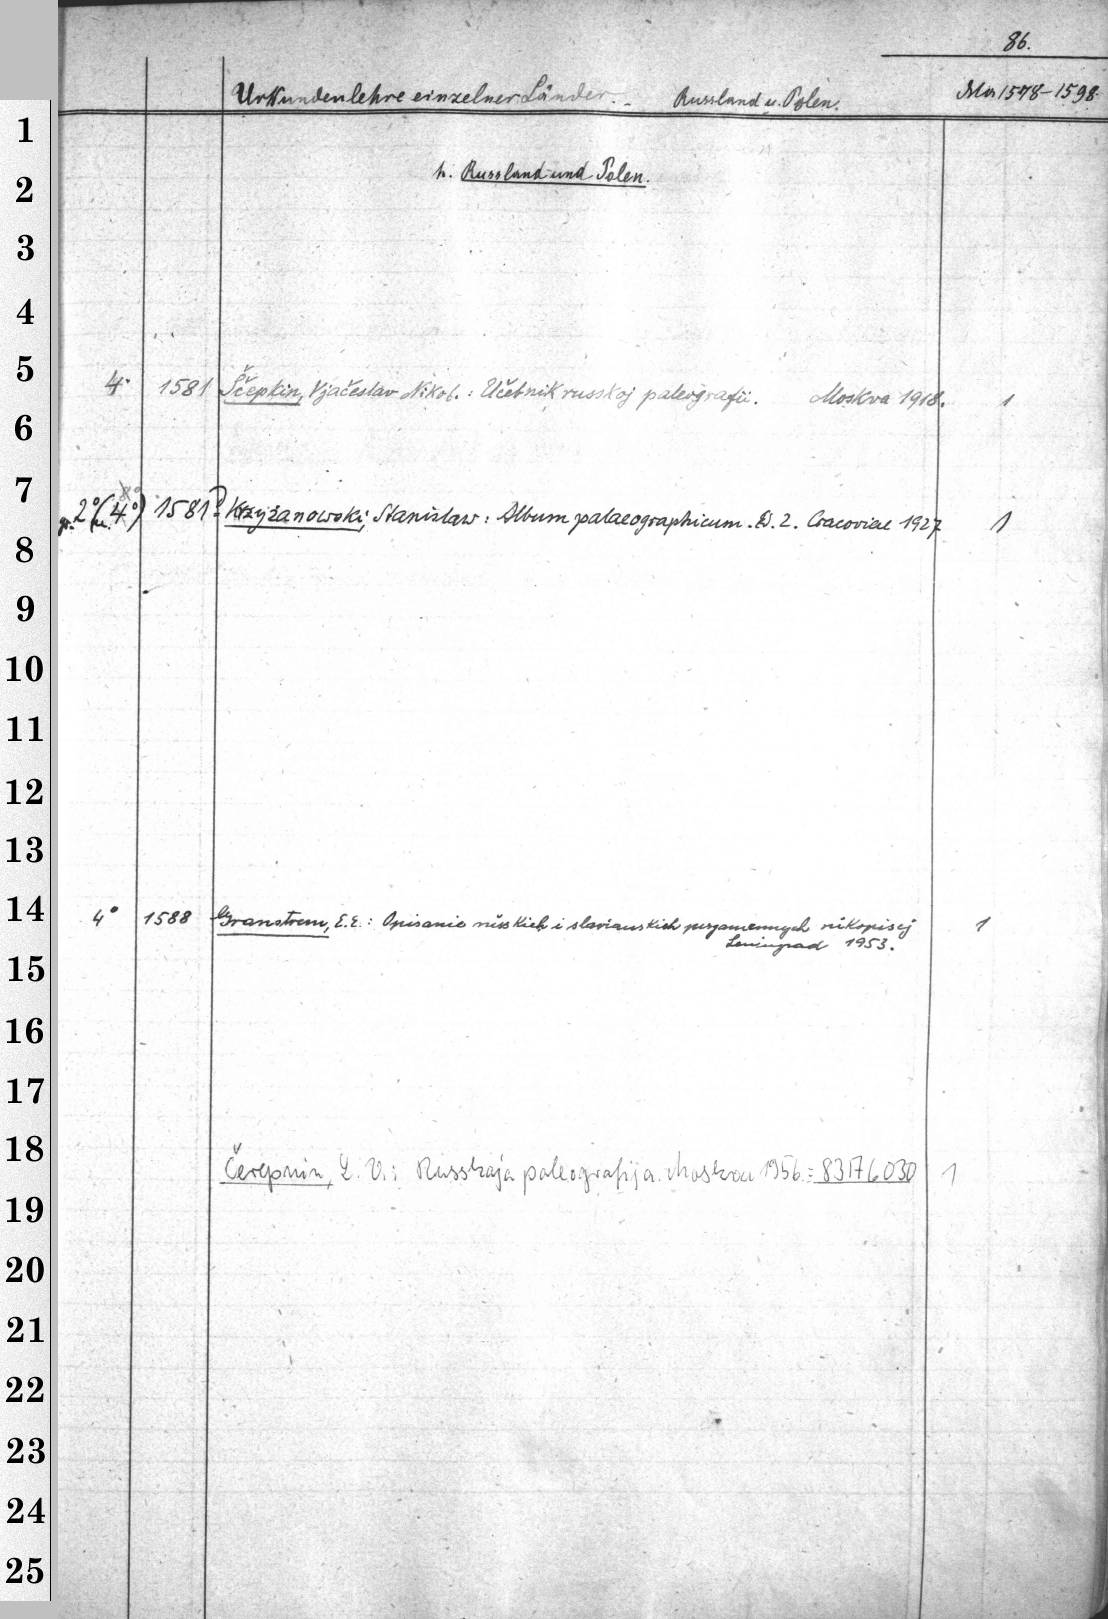 86.
Urkundenlehre einzelner Länder. - Russland u. Polen. Ma 1578-1598
1
h. Russland und Polen.
2
3
4
5
4° 1581 Ščepkin, Vjačeslav Nikol.: Učebnik russkoj paleografii. Moskva 1918. 1
6
7
gr. 2° (4°) 1581 Krzyżanowski, Stanislaw: Album palaeographicum. Ed. 2. Cracoviae 1927 1
8
9
10
11
12
13
14
4° 1588 Granstrem, E. E.: Opisanie rússkich i slavianskich pergamennych rúkopisej 1
Leningrad 1953.
15
16
17
18
Čerepnin, L. V.: Russkaja paleografija. Moskva 1956. = 8317 6030 1
19
20
21
22
23
24
25